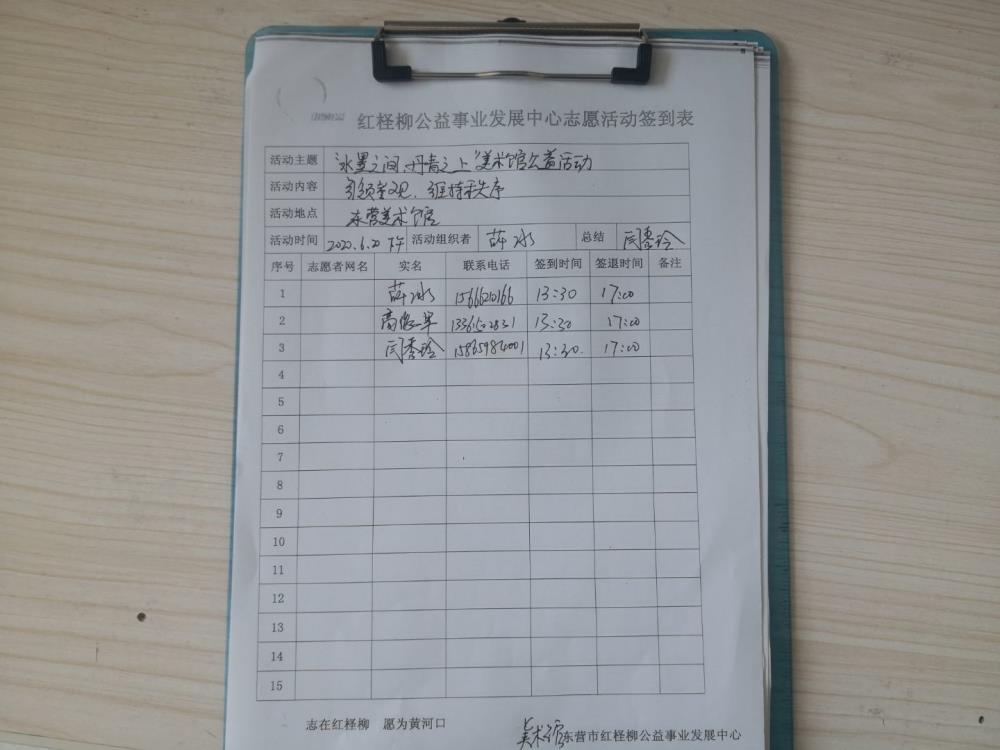 红柽柳公益事业发展中心志愿活动签到表
活动主题 "水墨之间、丹青之上"美术馆公益活动
活动内容 引领参观、维持秩序
活动地点 东营美术馆
活动时间 2020.6.20 下午 活动组织者 薛冰 总结 闫秀玲
序号 志愿者网名 实名 联系电话 签到时间 签退时间 备注
1 薛冰 13:30 17:00
2 13:30 17:00
3 闫秀玲 15865984001 13:30. 17:00
4
5
6
7
8
9
10
11
12
13
14
15
志在红柽柳 愿为黄河口
美术馆 东营市红柽柳公益事业发展中心